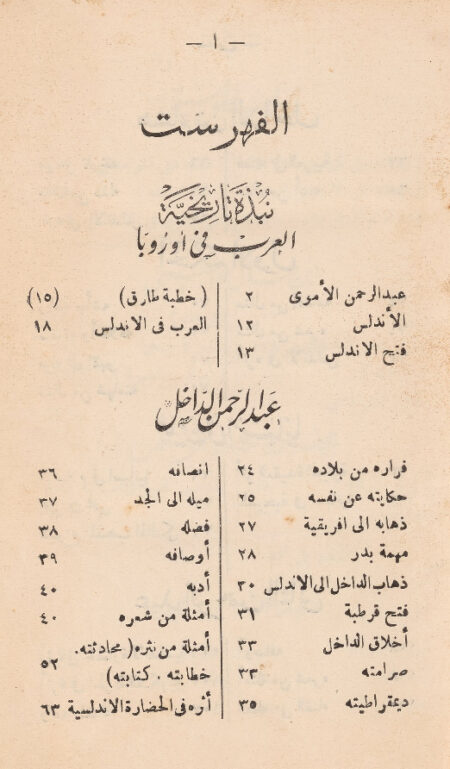 — ١ —
الفهرست
نبذة تاريخية
العرب في أوروبا
عبدالرحمن الأموى ٢
الأندلس ١٢
فتح الاندلس ١٣
( خطبة طارق ) (١٥)
العرب فى الاندلس ١٨
عبدالرحمن الداخل
فراره من بلاده ٢٤
حكايته عن نفسه ٢٥
ذهابه الى افريقية ٢٧
مهمة بدر ٢٨
ذهاب الداخل الى الاندلس ٣٠
فتح قرطبة ٣١
أخلاق الداخل ٣٣
صرامته ٣٣
ديمقراطيته ٣٥
انصافه ٣٦
ميله الى الجد ٣٧
فضله ٣٨
أوصافه ٣٩
أدبه ٤٠
أمثلة من شعره ٤٠
أمثلة من نثره ( محادثته .
خطابته . كتابته ) ٥٢
أثره فى الحضارة الاندلسية ٦٣